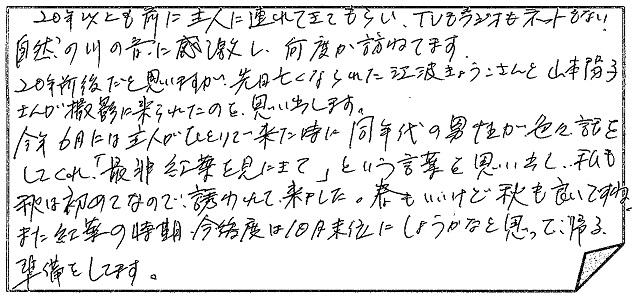 20年以上も前に主人に連れて来てもらい、TVもラジオもネットもない
自然の川の音に感激し、何度か訪ねてます。
20年前後だと思いますが、先日亡くなられた江波きょうこさんと山本陽子
さんが撮影に来られたのを、思い出します。
今年6月には主人がひとりで来た時に同年代の男性が色々話を
してくれ、「是非紅葉を見に来て」という言葉を思い出し、私も
秋は初めてなので、誘われて来ました。春もいいけど秋も良いですね。
また紅葉の時期、今度は10月末位にしようかなと思って、帰る
準備をしてます。